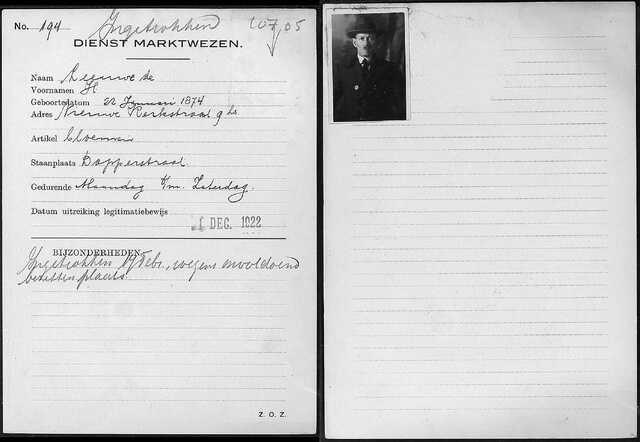 No. 194 Ingetrokken
DIENST MARKTWEZEN.
Naam Leeuwe de
Voornamen H
Geboortedatum 22 Januari 1874
Adres Nieuwe Kerkstraat 9 hs
Artikel Bloemen
Staanplaats Dapperstraat
Gedurende Maandag t/m. Zaterdag.
Datum uitreiking legitimatiebewijs
DEC. 1922
BIJZONDERHEDEN.
Ingetrokken Febr., wegens onvoldoend
bezetten plaats.
Z. O. Z.